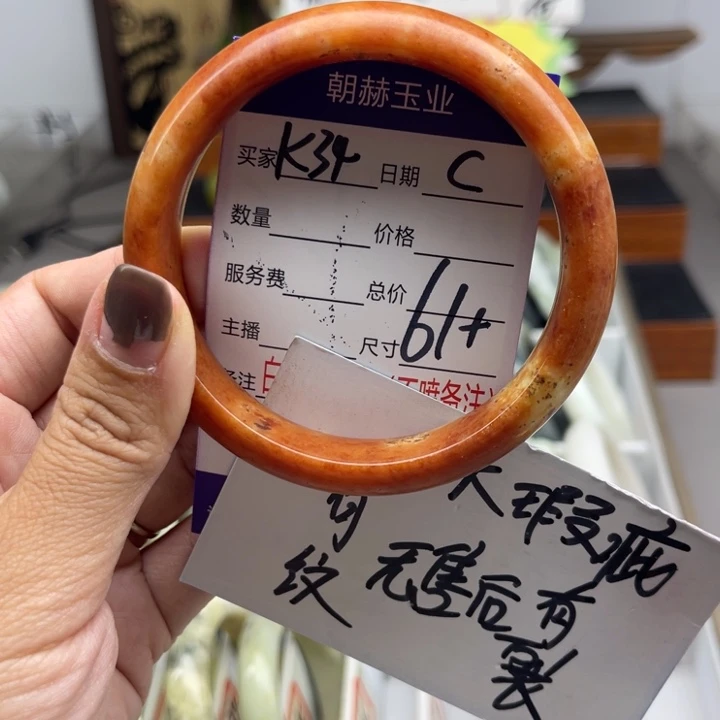 朝赫玉业
买家 K34 日期 C
数量 价格
服务费 总价
主播 尺寸 61+
备注 白
不喷备注
大瑕疵
纹 无售后有
裂